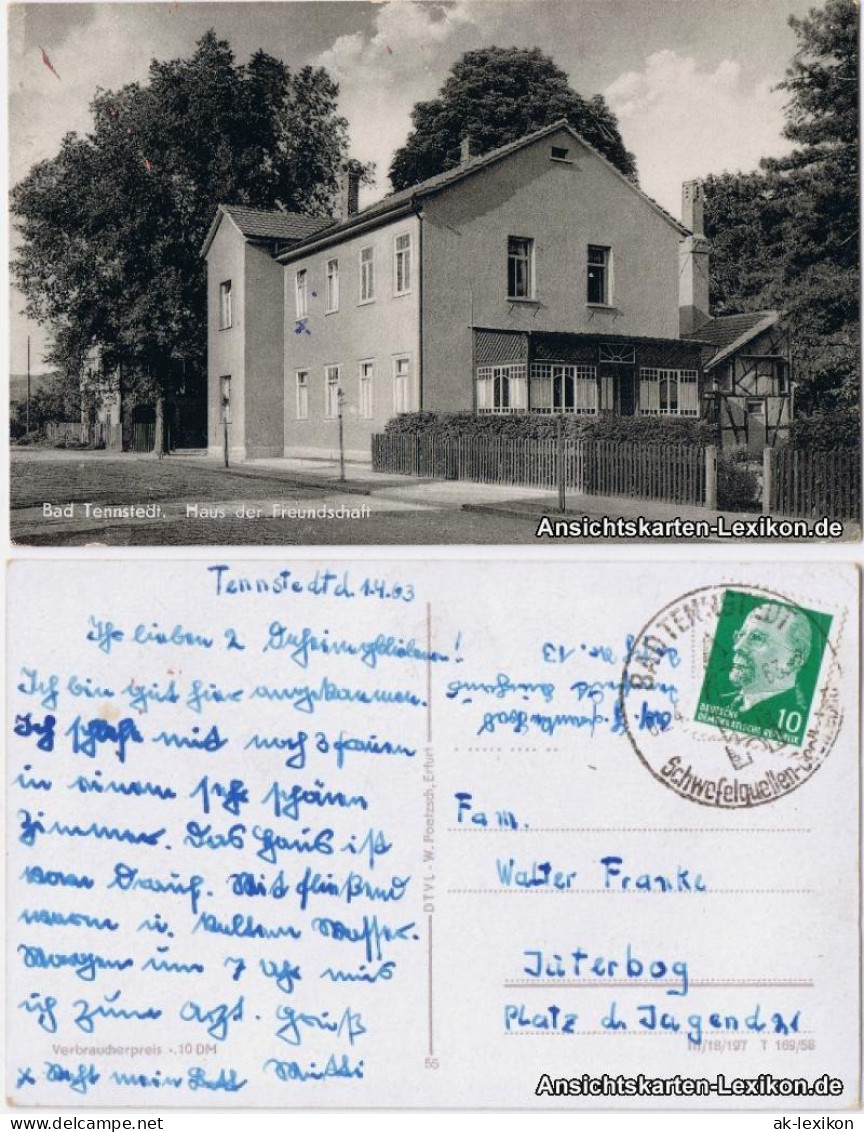 Bad Tennstedt. Haus der Freundschaft
Ansichtskarten-Lexikon.de
Tennstedt d. 1.4.63
Ihr lieben 2 Daheimgebliebenen!
Ich bin gut hier angekommen.
Ich schlafe mit noch 3 Frauen
in einem sehr schönen
Zimmer. Das Haus ist
vorn Drauf. Mit fließend
warm u. kaltem Wasser.
Morgen um 7 Uhr muß
ich zum Arzt. Gruß
x Steht mein Bett Mutti
Verbraucherpreis -.10 DM
55
DTVL - W. Poetzsch, Erfurt
Nr. 13
BAD TENNSTEDT
Schwefelquellen
DEUTSCHE
DEMOKRATISCHE REPUBLIK
10
Fam.
Walter Franke
Jüterbog
Platz d. Jugend 21
III/18/197 T 169/58
Ansichtskarten-Lexikon.de
ak-lexikon